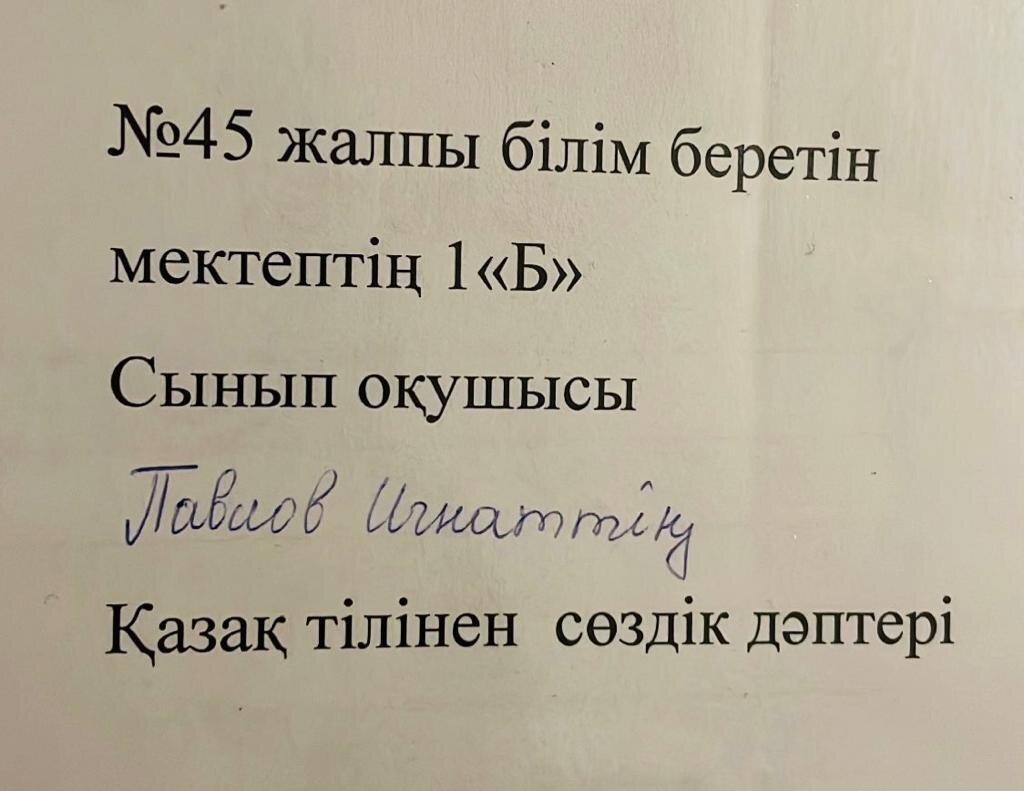 №45 жалпы білім беретін
мектептің 1«Б»
Сынып оқушысы
Павлов Игнаттің
Қазақ тілінен сөздік дәптері